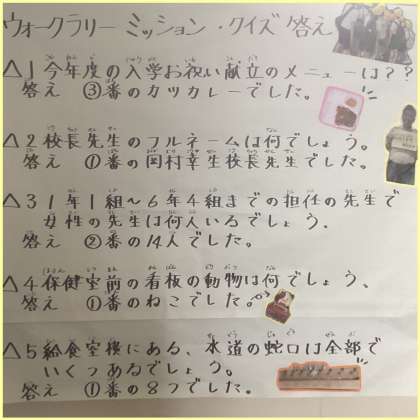 ウォークラリー ミッション・クイズ 答え
△1 今年度の入学お祝い献立のメニューは??
答え ③番のカツカレーでした。
△2 校長先生のフルネームは何でしょう。
答え ①番の岡村幸生校長先生でした。
△3 1年1組〜6年4組までの担任の先生で
女性の先生は何人いるでしょう。
答え ②番の14人でした。
△4 保健室前の看板の動物は何でしょう、
答え ①番のねこでした。
△5 給食室横にある、水道の蛇口は全部で
いくつあるでしょう。
答え ①番の8つでした。